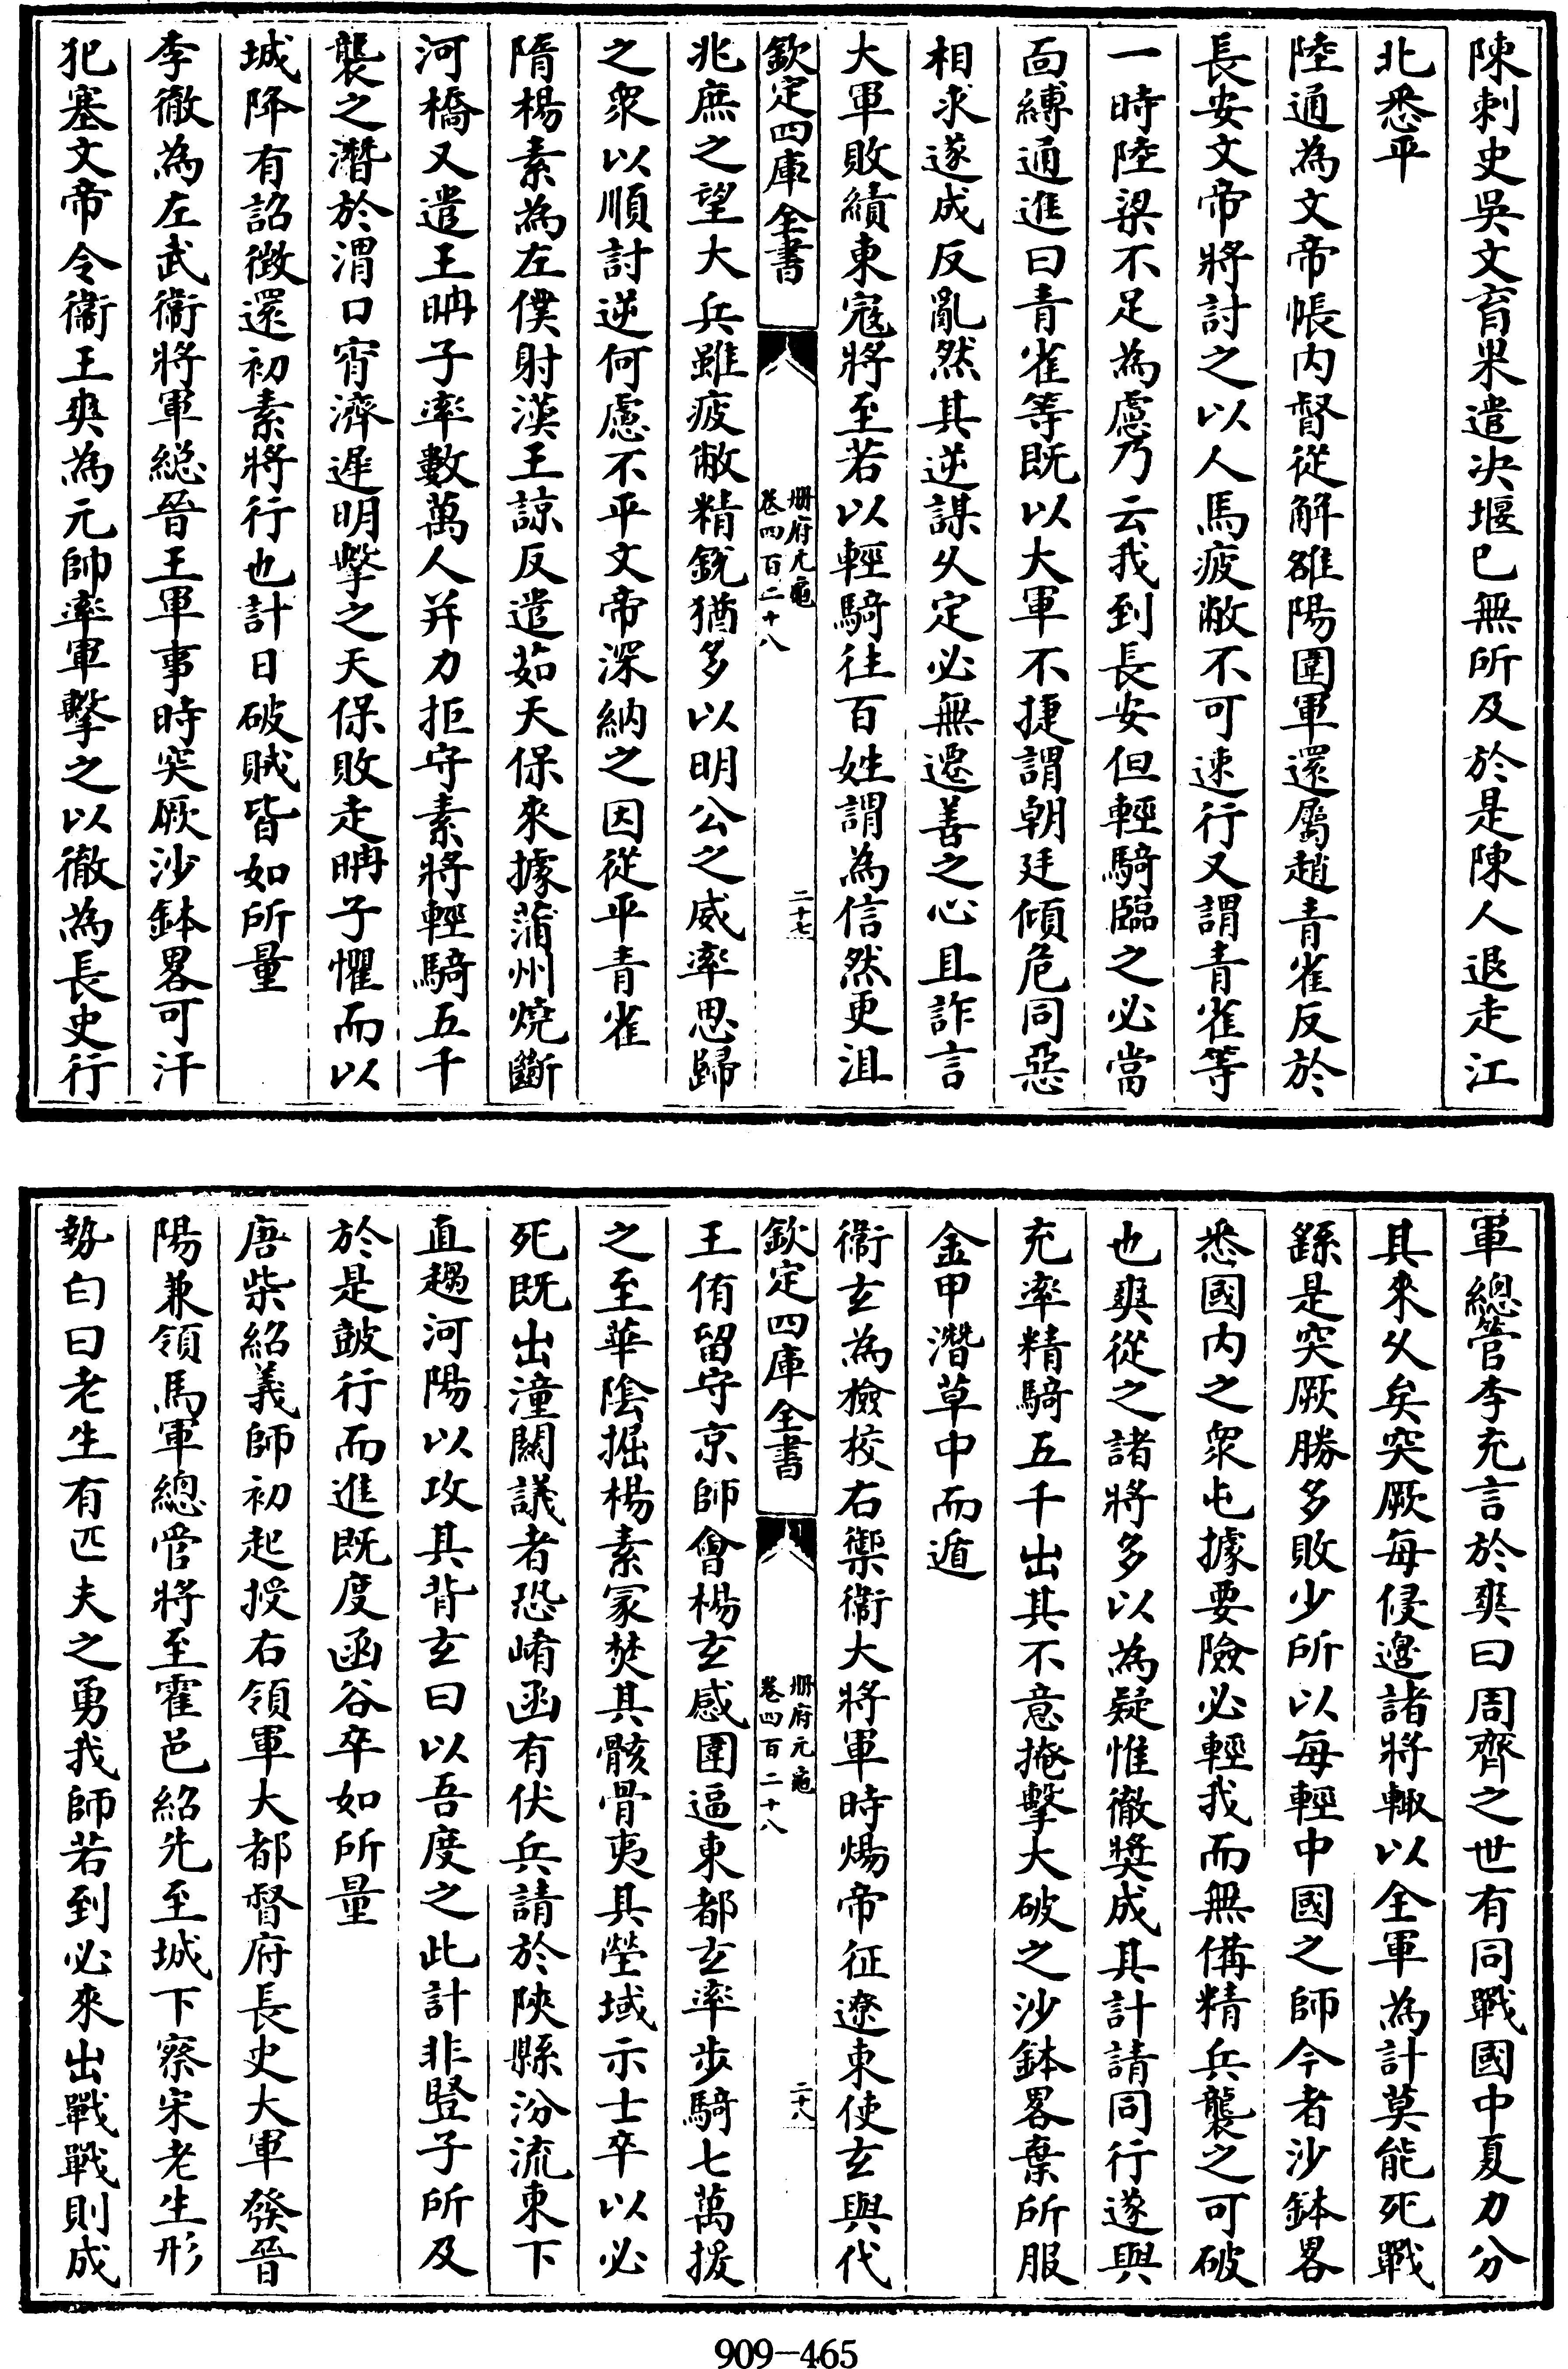 陳刺史吳文育果遣决堰已無所及於是陳人退走江
北悉平
陸通為文帝帳内督從解雒陽圍軍還屬趙青雀反於
長安文帝將討之以人馬疲敝不可速行又謂青雀等
一時陸梁不足為慮乃云我到長安但輕騎臨之必當
面縛通進曰青雀等既以大軍不捷謂朝廷傾危同惡
相求遂成反亂然其逆謀乆定必無遷善之心且詐言
大軍敗績東寇將至若以輕騎往百姓謂為信然更沮
欽定四庫全書
册府元龜
卷四百二十八
二十七
兆庶之望大兵雖疲敝精銳猶多以明公之威率思歸
之衆以順討逆何慮不平文帝深納之因從平青雀
隋楊素為左僕射漢王諒反遣茹天保來據蒲州燒斷
河橋又遣王聃子率數萬人并力拒守素將輕騎五千
襲之潛於渭口宵濟遲明擊之天保敗走聃子懼而以
城降有詔徵還初素將行也計日破賊皆如所量
李徹為左武衞將軍総晉王軍事時突厥沙鉢畧可汗
犯塞文帝令衞王爽為元帥率軍擊之以徹為長史行
軍總管李充言於爽曰周齊之世有同戰國中夏力分
其來乆矣突厥每侵邊諸將輙以全軍為計莫能死戰
繇是突厥勝多敗少所以每輕中國之師今者沙鉢畧
悉國内之衆屯據要險必輕我而無備精兵襲之可破
也爽從之諸將多以為疑惟徹奬成其計請同行遂與
充率精騎五千出其不意掩擊大破之沙鉢畧棄所服
金甲潛草中而遁
衞玄為檢校右禦衞大將軍時煬帝征遼東使玄與代
欽定四庫全書
册府元龜
卷四百二十八
二十八
王侑留守京師會楊玄感圍逼東都玄率步騎七萬援
之至華陰掘楊素冢焚其骸骨夷其塋域示士卒以必
死既出潼關議者恐崤函有伏兵請於陜縣汾流東下
直趨河陽以攻其背玄曰以吾度之此計非豎子所及
於是鼓行而進既度函谷卒如所量
唐柴紹義師初起授右領軍大都督府長史大軍發晉
陽兼領馬軍總管將至霍邑紹先至城下察宋老生形
勢白曰老生有匹夫之勇我師若到必來出戰戰則成
909-465